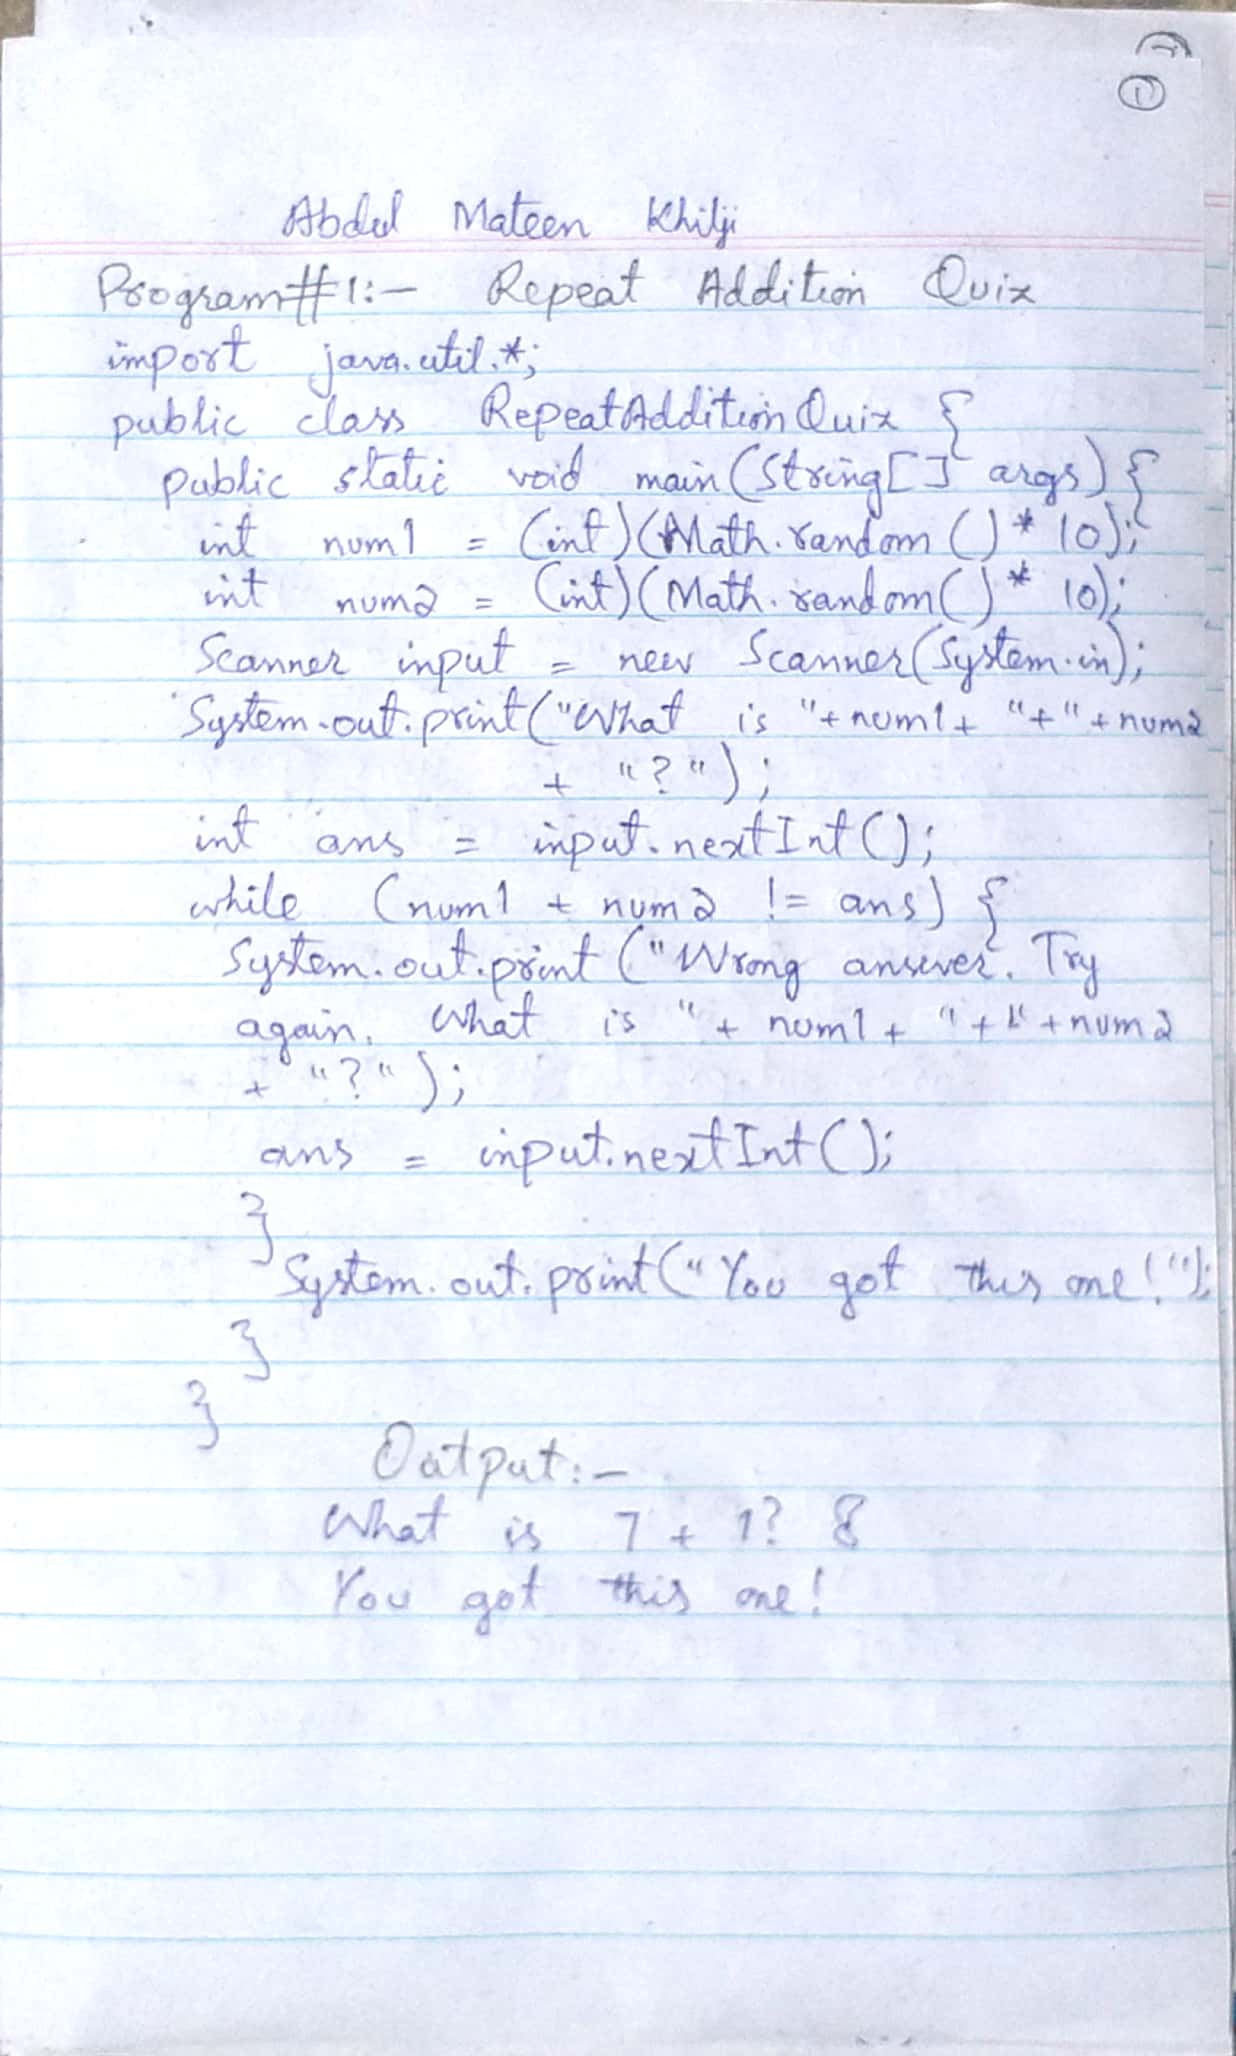 1
Abdul Mateen Khilji
Program#1:- Repeat Addition Quiz
import java.util.*;
public class RepeatAdditionQuiz {
public static void main(String[] args) {
int num1 = (int)(Math.random() * 10);
int num2 = (int)(Math.random() * 10);
Scanner input = new Scanner(System.in);
System.out.print("What is "+num1+ "+" +num2
+ "?");
int ans = input.nextInt();
while (num1 + num2 != ans) {
System.out.print("Wrong answer. Try
again. What is "+ num1+ "+" +num2
+ "?");
ans = input.nextInt();
}
System.out.print("You got this one!");
}
}
Output:-
What is 7 + 1? 8
You got this one!